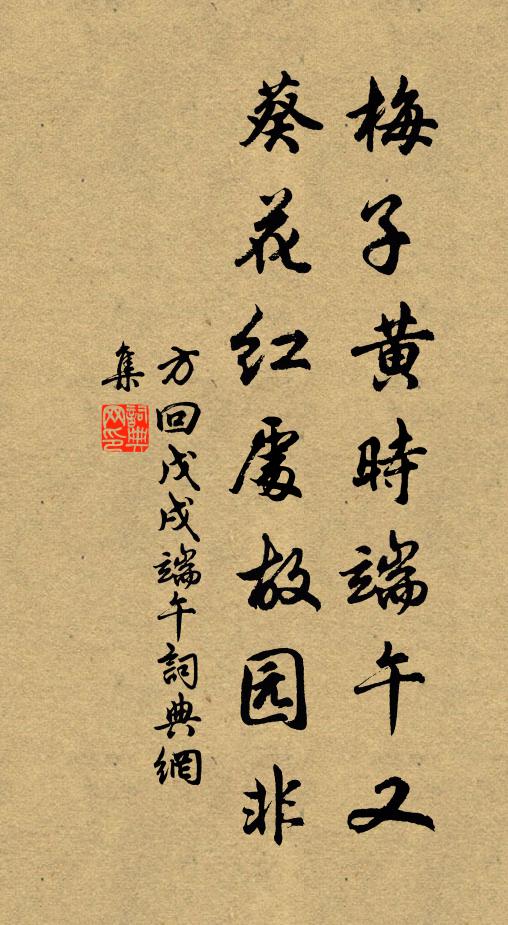 梅子黄時端午又
葵花红處故园非
方回戊戌端午詞典網
集
詞典网印